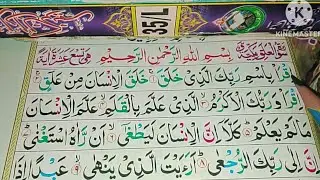 35/L
KINEMASTER
بِسْمِ اللهِ الرَّحْمٰنِ الرَّحِيْمِ
اِقْرَاْ بِاسْمِ رَبِّكَ الَّذِىْ خَلَقَ ۚ خَلَقَ الْاِنْسَانَ مِنْ عَلَقٍ ۚ
اِقْرَاْ وَرَبُّكَ الْاَكْرَمُ ۙ الَّذِىْ عَلَّمَ بِالْقَلَمِ ۙ عَلَّمَ الْاِنْسَانَ
مَا لَمْ يَعْلَمْ ؕ كَلَّاۤ اِنَّ الْاِنْسَانَ لَيَطْغٰٓى ۙ اَنْ رَّاٰهُ اسْتَغْنٰى
اِنَّ اِلٰى رَبِّكَ الرُّجْعٰى ؕ اَرَءَيْتَ الَّذِىْ يَنْهٰى ۙ عَبْدًا اِذَا